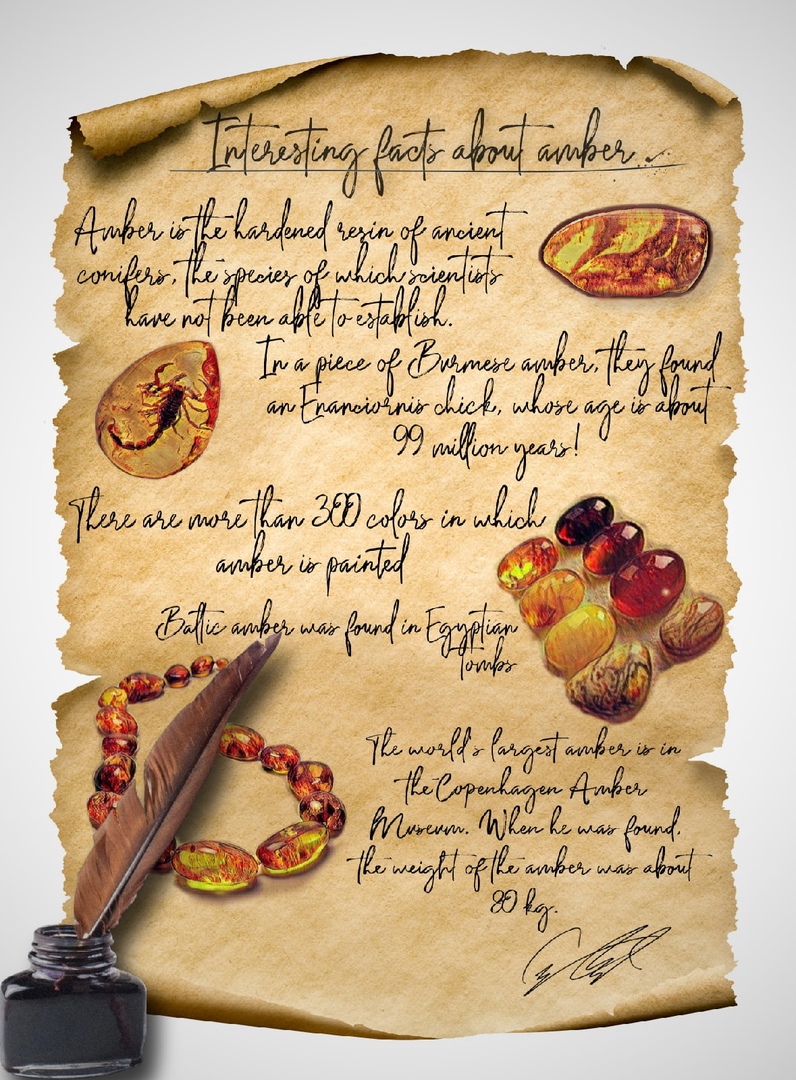 Interesting facts about amber
Amber is the hardened resin of ancient
conifers, the species of which scientists
have not been able to establish.
In a piece of Burmese amber, they found
an Enanciornis chick, whose age is about
99 million years!
There are more than 300 colors in which
amber is painted
Baltic amber was found in Egyptian
tombs
The world's largest amber is in
the Copenhagen Amber
Museum. When he was found,
the weight of the amber was about
80 kg.